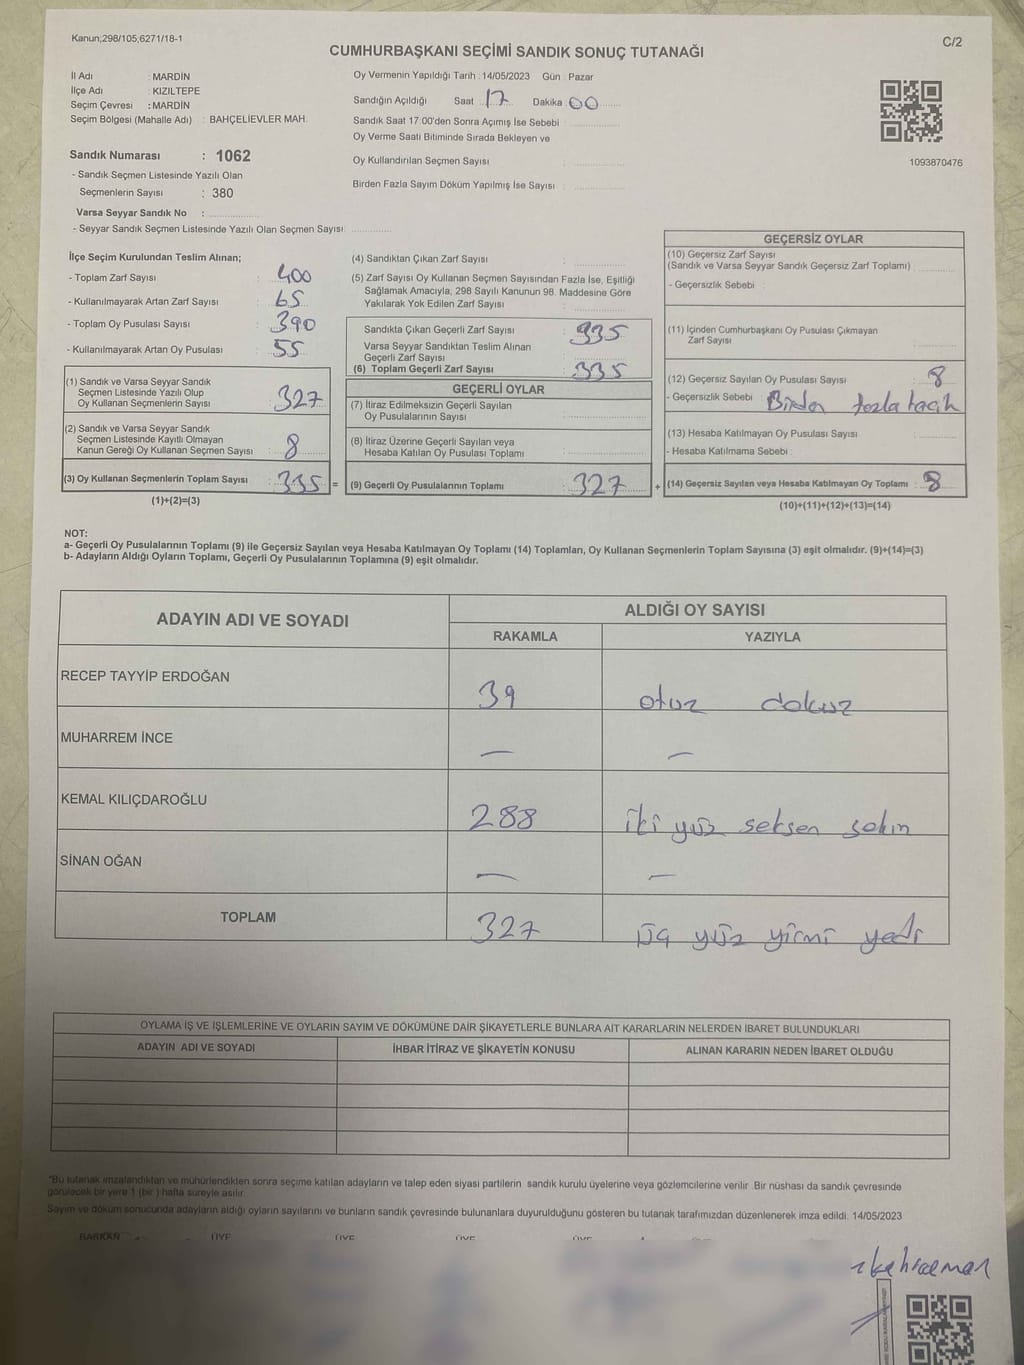 Kanun;298/105;6271/18-1
C/2
CUMHURBAŞKANI SEÇİMİ SANDIK SONUÇ TUTANAĞI
İl Adı : MARDİN
İlçe Adı : KIZILTEPE
Seçim Çevresi : MARDİN
Seçim Bölgesi (Mahalle Adı) : BAHÇELİEVLER MAH.
Sandık Numarası : 1062
- Sandık Seçmen Listesinde Yazılı Olan
Seçmenlerin Sayısı : 380
Varsa Seyyar Sandık No :
- Seyyar Sandık Seçmen Listesinde Yazılı Olan Seçmen Sayısı:
Oy Vermenin Yapıldığı Tarih : 14/05/2023 Gün : Pazar
Sandığın Açıldığı Saat : 17 Dakika : 00
Sandık Saat 17:00'den Sonra Açımış İse Sebebi :
Oy Verme Saati Bitiminde Sırada Bekleyen ve
Oy Kullandırılan Seçmen Sayısı :
Birden Fazla Sayım Döküm Yapılmış İse Sayısı :
1093870476
İlçe Seçim Kurulundan Teslim Alınan;
- Toplam Zarf Sayısı : 400
- Kullanılmayarak Artan Zarf Sayısı : 65
- Toplam Oy Pusulası Sayısı : 390
- Kullanılmayarak Artan Oy Pusulası : 55
(1) Sandık ve Varsa Seyyar Sandık
Seçmen Listesinde Yazılı Olup
Oy Kullanan Seçmenlerin Sayısı : 327
(2) Sandık ve Varsa Seyyar Sandık
Seçmen Listesinde Kayıtlı Olmayan
Kanun Gereği Oy Kullanan Seçmen Sayısı : 8
(3) Oy Kullanan Seçmenlerin Toplam Sayısı : 335 =
(1)+(2)=(3)
(4) Sandıktan Çıkan Zarf Sayısı :
(5) Zarf Sayısı Oy Kullanan Seçmen Sayısından Fazla İse, Eşitliği
Sağlamak Amacıyla, 298 Sayılı Kanunun 98. Maddesine Göre
Yakılarak Yok Edilen Zarf Sayısı :
Sandıkta Çıkan Geçerli Zarf Sayısı : 335
Varsa Seyyar Sandıktan Teslim Alınan
Geçerli Zarf Sayısı :
(6) Toplam Geçerli Zarf Sayısı : 335
GEÇERLİ OYLAR
(7) İtiraz Edilmeksizin Geçerli Sayılan
Oy Pusulalarının Sayısı :
(8) İtiraz Üzerine Geçerli Sayılan veya
Hesaba Katılan Oy Pusulası Toplamı :
(9) Geçerli Oy Pusulalarının Toplamı : 327 +
GEÇERSİZ OYLAR
(10) Geçersiz Zarf Sayısı
(Sandık ve Varsa Seyyar Sandık Geçersiz Zarf Toplamı) :
- Geçersizlik Sebebi :
(11) İçinden Cumhurbaşkanı Oy Pusulası Çıkmayan
Zarf Sayısı :
(12) Geçersiz Sayılan Oy Pusulası Sayısı : 8
- Geçersizlik Sebebi : Birden fazla tercih
(13) Hesaba Katılmayan Oy Pusulası Sayısı :
- Hesaba Katılmama Sebebi :
(14) Geçersiz Sayılan veya Hesaba Katılmayan Oy Toplamı : 8
(10)+(11)+(12)+(13)=(14)
NOT:
a- Geçerli Oy Pusulalarının Toplamı (9) ile Geçersiz Sayılan veya Hesaba Katılmayan Oy Toplamı (14) Toplamları, Oy Kullanan Seçmenlerin Toplam Sayısına (3) eşit olmalıdır. (9)+(14)=(3)
b- Adayların Aldığı Oyların Toplamı, Geçerli Oy Pusulalarının Toplamına (9) eşit olmalıdır.
ADAYIN ADI VE SOYADI
ALDIĞI OY SAYISI
RAKAMLA YAZIYLA
RECEP TAYYİP ERDOĞAN 39 otuz dokuz
MUHARREM İNCE — —
KEMAL KILIÇDAROĞLU 288 iki yüz seksen sekin
SİNAN OĞAN — —
TOPLAM 327 üç yüz yirmi yedi
OYLAMA İŞ VE İŞLEMLERİNE VE OYLARIN SAYIM VE DÖKÜMÜNE DAİR ŞİKAYETLERLE BUNLARA AİT KARARLARIN NELERDEN İBARET BULUNDUKLARI
ADAYIN ADI VE SOYADI İHBAR İTİRAZ VE ŞİKAYETİN KONUSU ALINAN KARARIN NEDEN İBARET OLDUĞU
*Bu tutanak imzalandıktan ve mühürlendikten sonra seçime katılan adayların ve talep eden siyasi partilerin sandık kurulu üyelerine veya gözlemcilerine verilir .Bir nüshası da sandık çevresinde
görülecek bir yere 1 (bir ) hafta süreyle asılır.
Sayım ve döküm sonucunda adayların aldığı oyların sayılarını ve bunların sandık çevresinde bulunanlara duyurulduğunu gösteren bu tutanak tarafımızdan düzenlenerek imza edildi. 14/05/2023
BAŞKAN ÜYE ÜYE ÜYE ÜYE